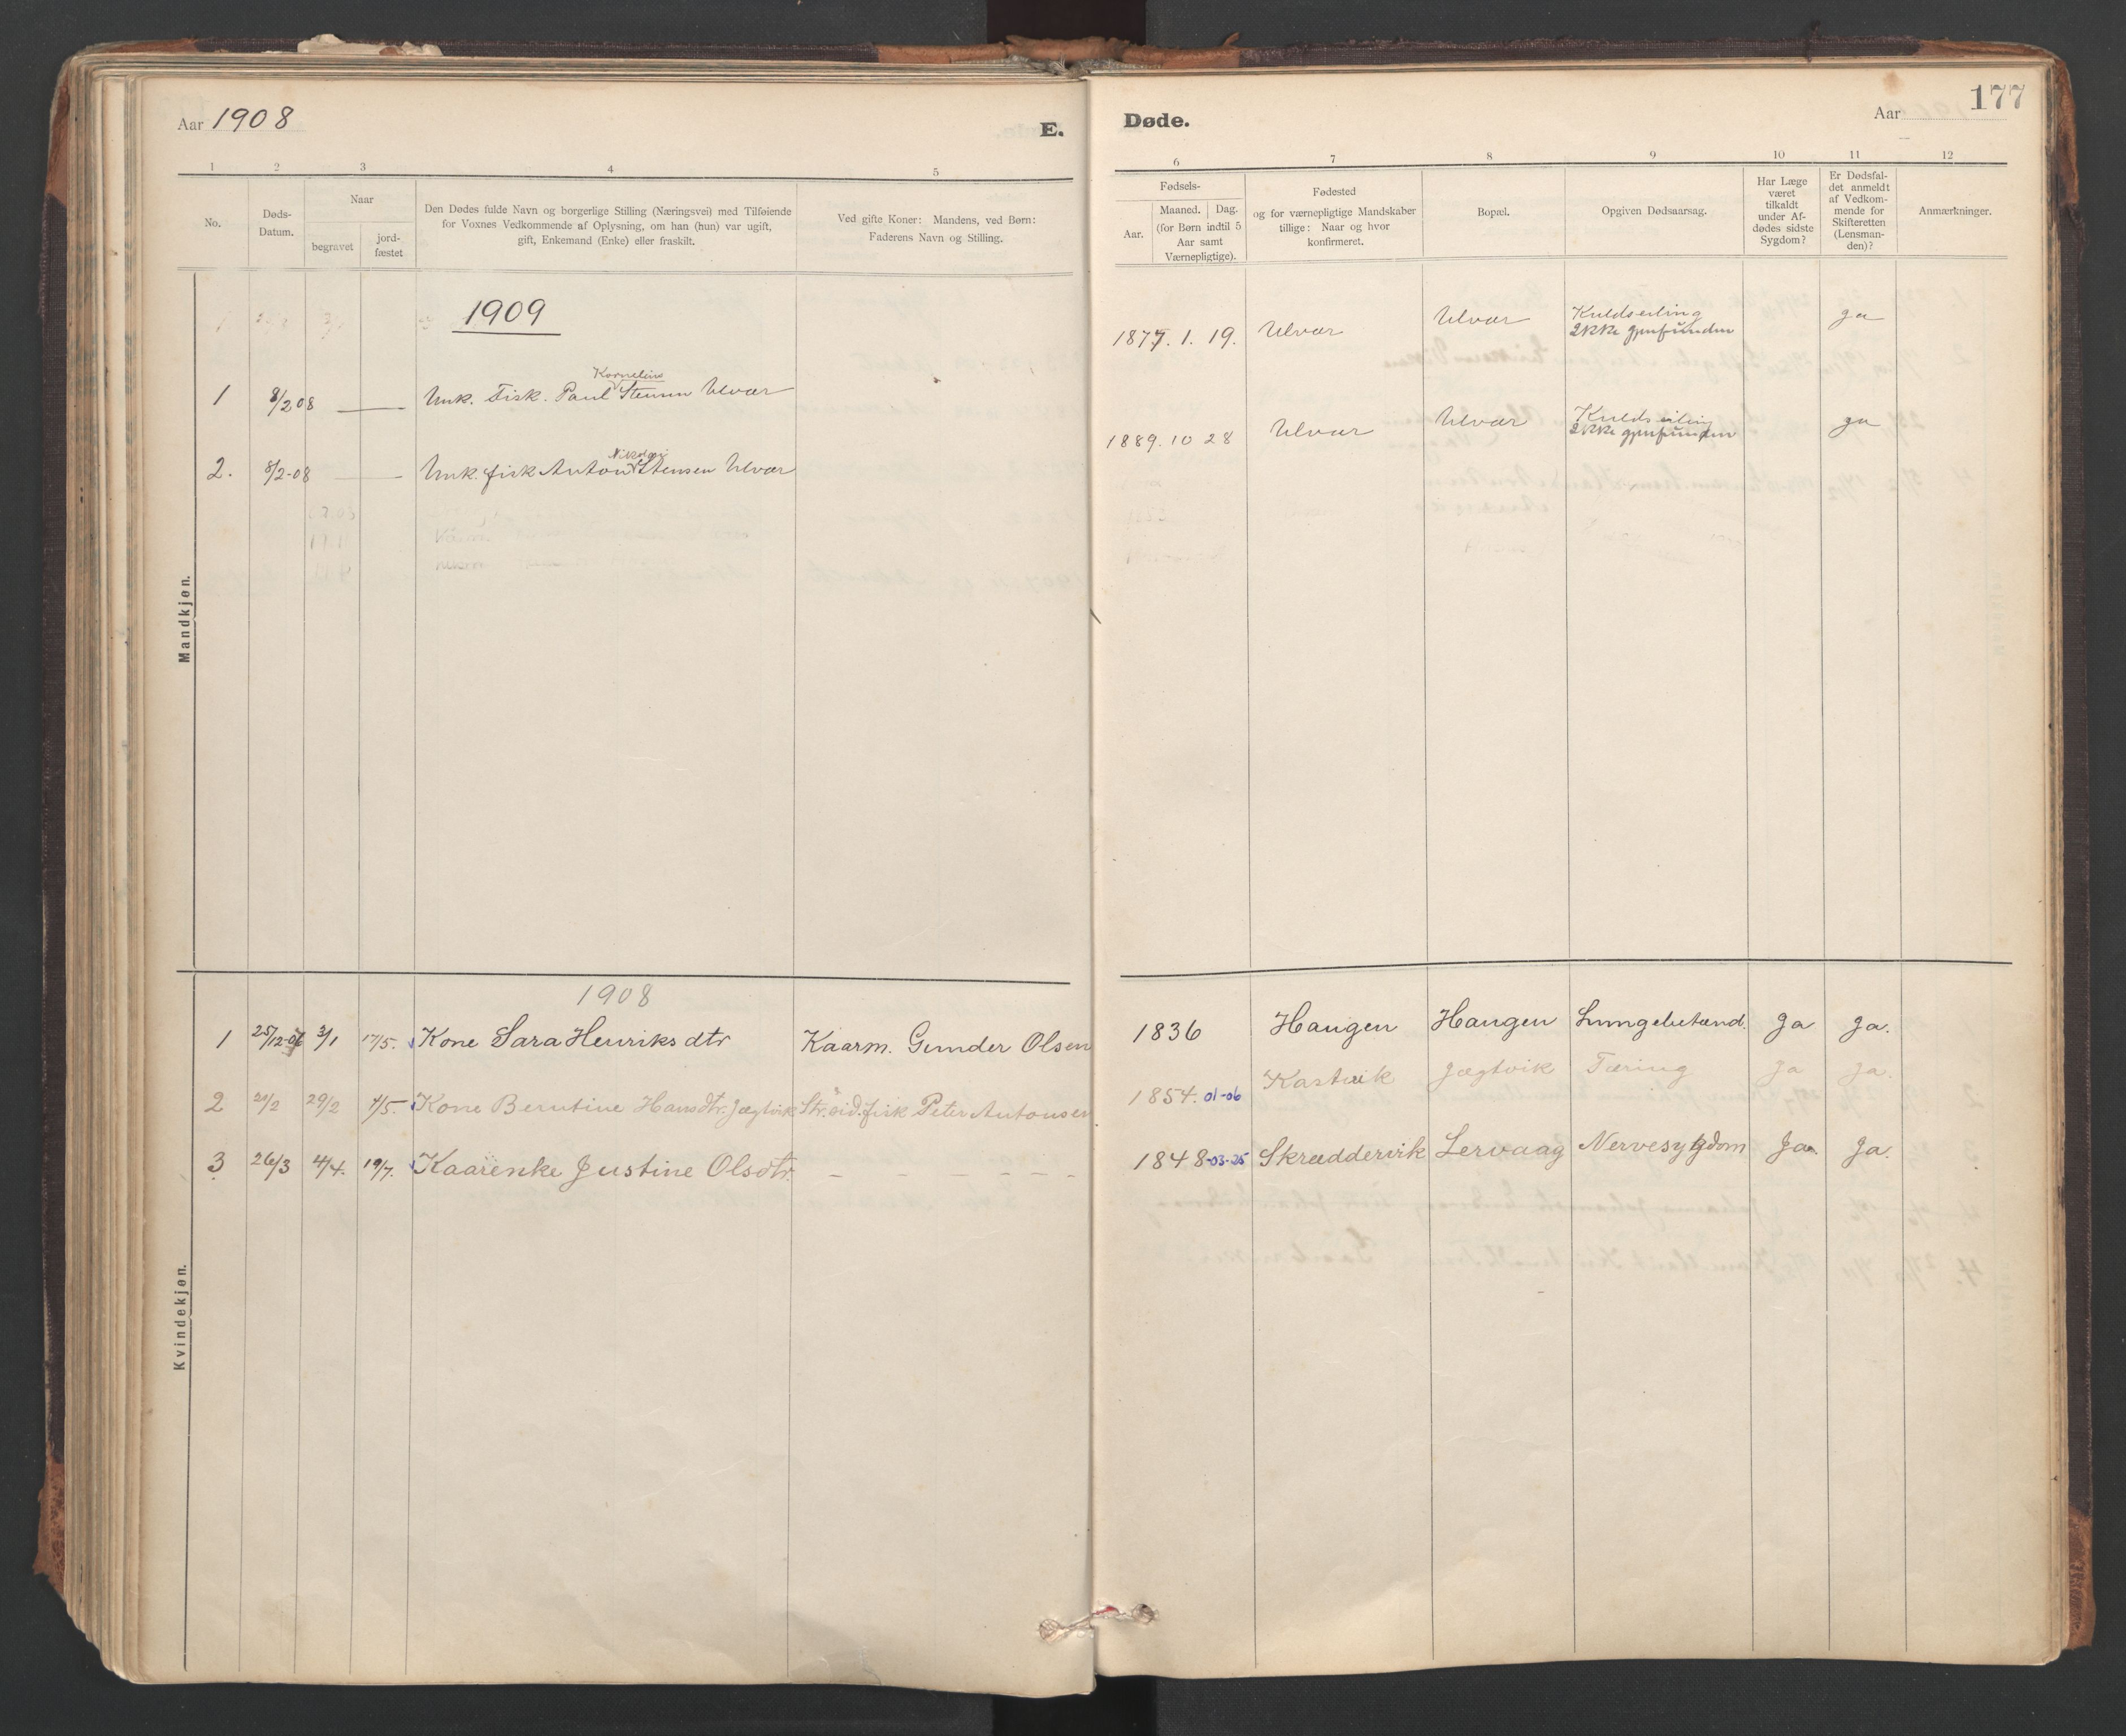 Aar 1908
E.
Døde.
Aar
177
1 2 3 4 5 6 7 8 9 10 11 12
No.
Døds-
Datum.
Naar
begravet
jord-
fæstet
Den Dødes fulde Navn og borgerlige Stilling (Næringsvei) med Tilføiende
for Voxnes Vedkommende af Oplysning, om han (hun) var ugift,
gift, Enkemand (Enke) eller fraskilt.
Ved gifte Koner: Mandens, ved Børn:
Faderens Navn og Stilling.
Fødsels-
Aar.
Maaned. Dag.
(for Børn indtil 5
Aar samt
Værnepligtige).
Fødested
og for værnepligtige Mandskaber
tillige: Naar og hvor
konfirmeret.
Bopæl.
Opgiven Dødsaarsag.
Har Læge
været
tilkaldt
under Af-
dødes sidste
Sygdom?
Er Dødsfal-
det anmeldt
af Vedkom-
mende for
Skifteretten
(Lensman-
den)?
Anmærkninger.
Mandkjøn.
1909
Kornelius
1 8/2 08 — Unk. Fisk. Paul Stensen Ulvær 1877. 1. 19. Ulvær Ulvær Kuldseiling ja
Ikke gjenfunden
Nikolai
2. 8/2-08 — Unk. fisk Anton Stensen Ulvær 1889. 10 28 Ulvær Ulvær Kuldseiling ja
Ikke gjenfunden
Kvindekjøn.
1908
1 25/12-07 3/1 17/5. Kone Sara Henriksdtr Kaarm. Gunder Olsen 1836 Haugen Haugen Lungebetænd. Ja Ja.
2 21/2 29/2 4/5. Kone Berntine Hansdtr. Jægtvik Str.sid. fisk Peter Antonsen 1854. 01-06 Kastvik Jægtvik Tæring Ja Ja.
3 26/3 4/4. 19/7. Kaarenke Justine Olsdtr. — — — — — — 1848-03-25 Skræddervik Lervaag Nervesygdom Ja. Ja.